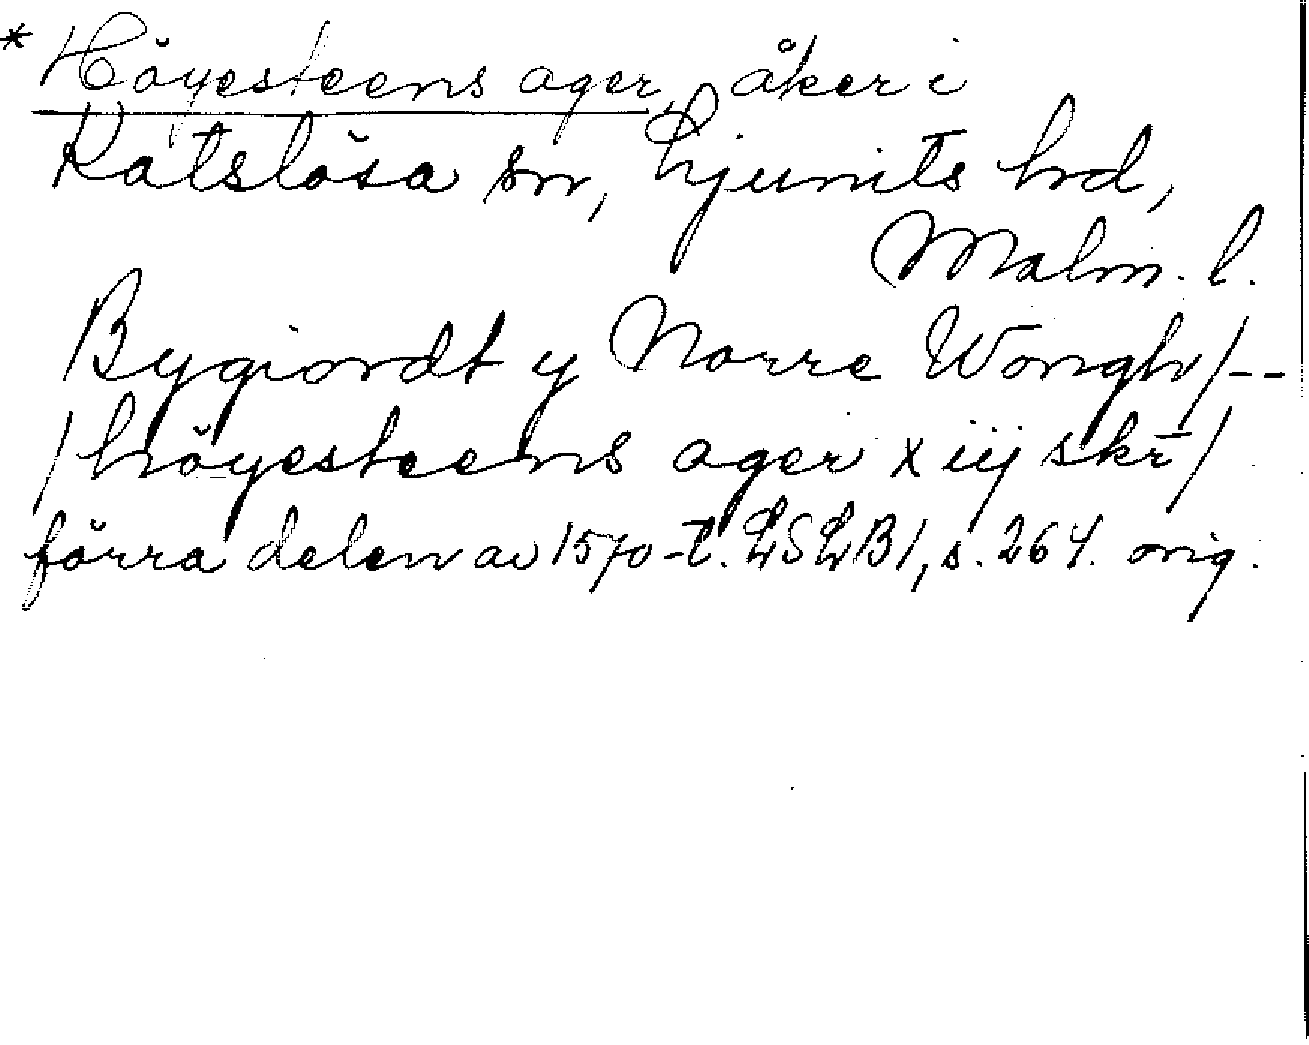 * Höyesteens ager, åker i
Katslösa sn, Ljunits hd,
Malm. l.
Bygiordt y Norre Wongh/--
/höyesteens ager x iij skr̄/
förra delen av 1570-t. LSLB1, s. 264. orig.